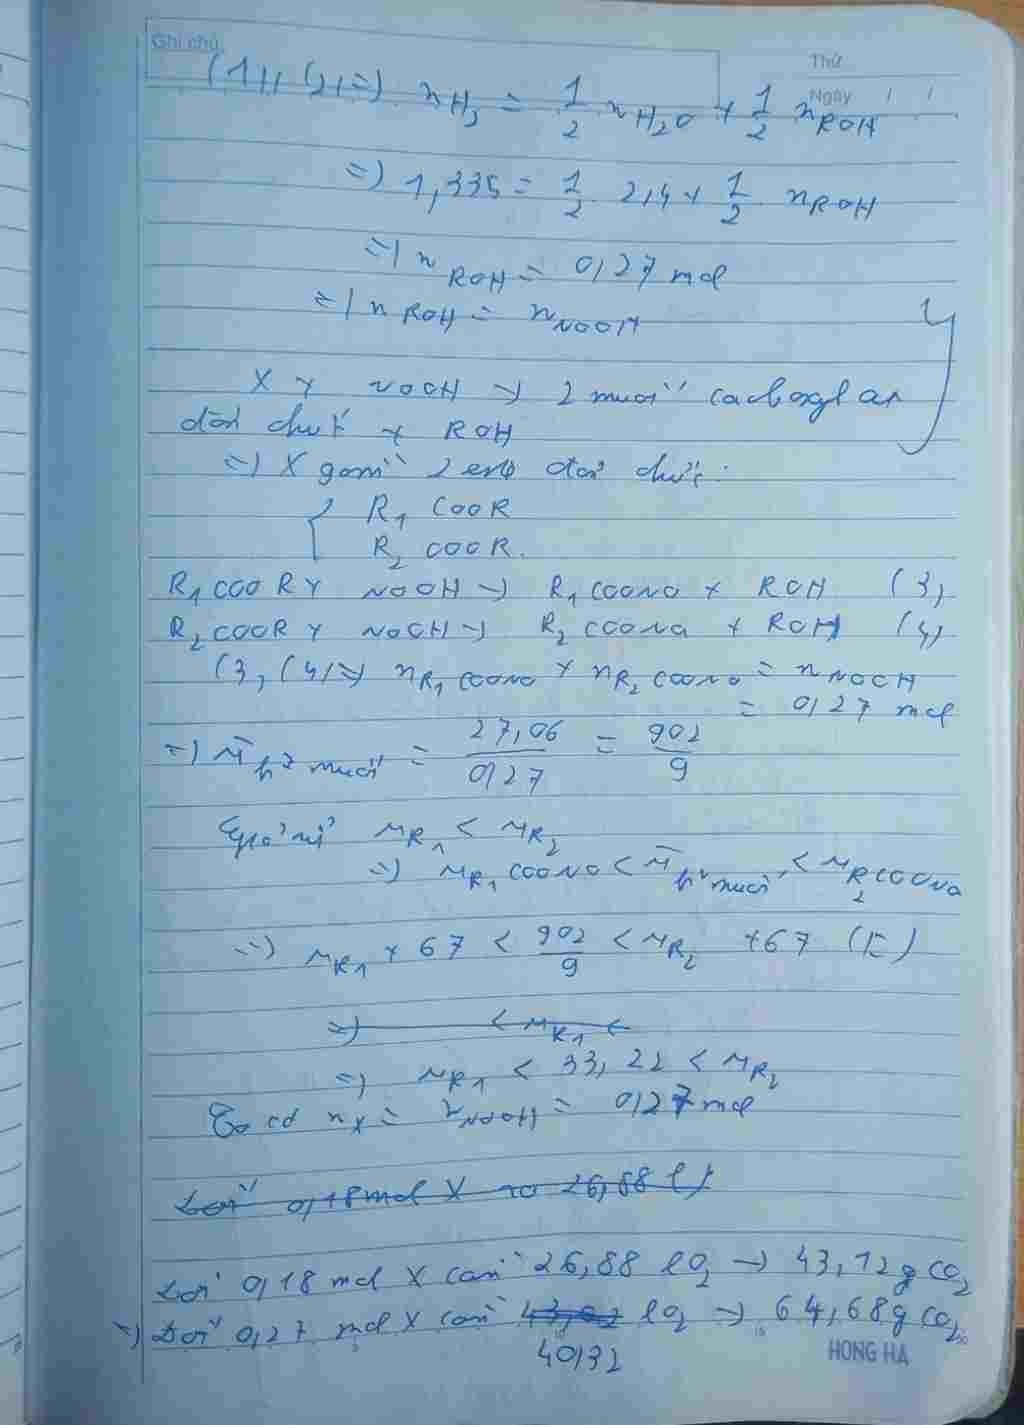 Ghi chú
Thứ
Ngày / /
(1), (2) => nH2 = 1/2 nH2O + 1/2 nROH
=> 1,335 = 1/2 . 2,4 + 1/2 . nROH
=> nROH = 0,27 mol
=> nROH = nNaOH
X + NaOH -> 2 muối cacboxylat
đơn chức + ROH
=> X gồm 2 este đơn chức:
R1 COOR
R2 COOR.
R1COOR + NaOH -> R1COONa + ROH (3)
R2COOR + NaOH -> R2COONa + ROH (4)
(3), (4) => nR1COONa + nR2COONa = nNaOH
= 0,27 mol
=> M̄h² muối = 27,06/0,27 = 902/9
Giả sử MR1 < MR2
=> MR1COONa < M̄h² muối < MR2COONa
=> MR1 + 67 < 902/9 < MR2 + 67
=> < MR1 <
=> MR1 < 33,22 < MR2
Ta có nX = nNaOH = 0,27 mol
Đốt 0,18 mol X 26,88 l
Đốt 0,18 mol X cần 26,88 l O2 -> 43,12g CO2
=> Đốt 0,27 mol X cần l O2 -> 64,68g CO2
40,32
HONG HA